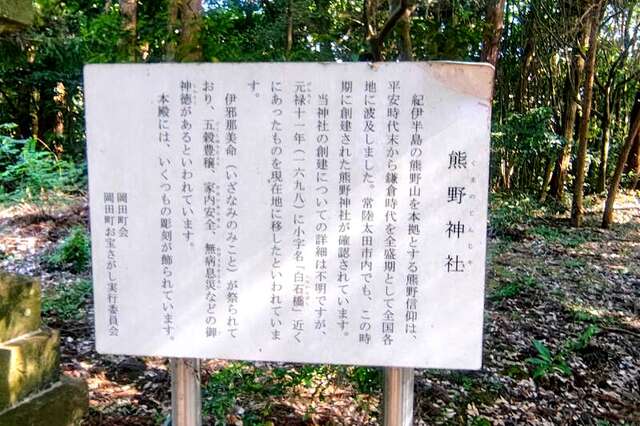 熊野神社
紀伊半島の熊野山を本拠とする熊野信仰は、
平安時代末から鎌倉時代を全盛期として全国各
地に波及しました。常陸太田市内でも、この時
期に創建された熊野神社が確認されています。
当神社の創建についての詳細は不明ですが、
元禄十一年（一六九八）に小字名「白石橋」近く
にあったものを現在地に移したといわれていま
す。
伊邪那美命（いざなみのみこと）が祭られて
おり、五穀豊穣、家内安全、無病息災などの御
神徳があるといわれています。
本殿には、いくつもの彫刻が飾られています。
岡田町会
岡田町お宝さがし実行委員会